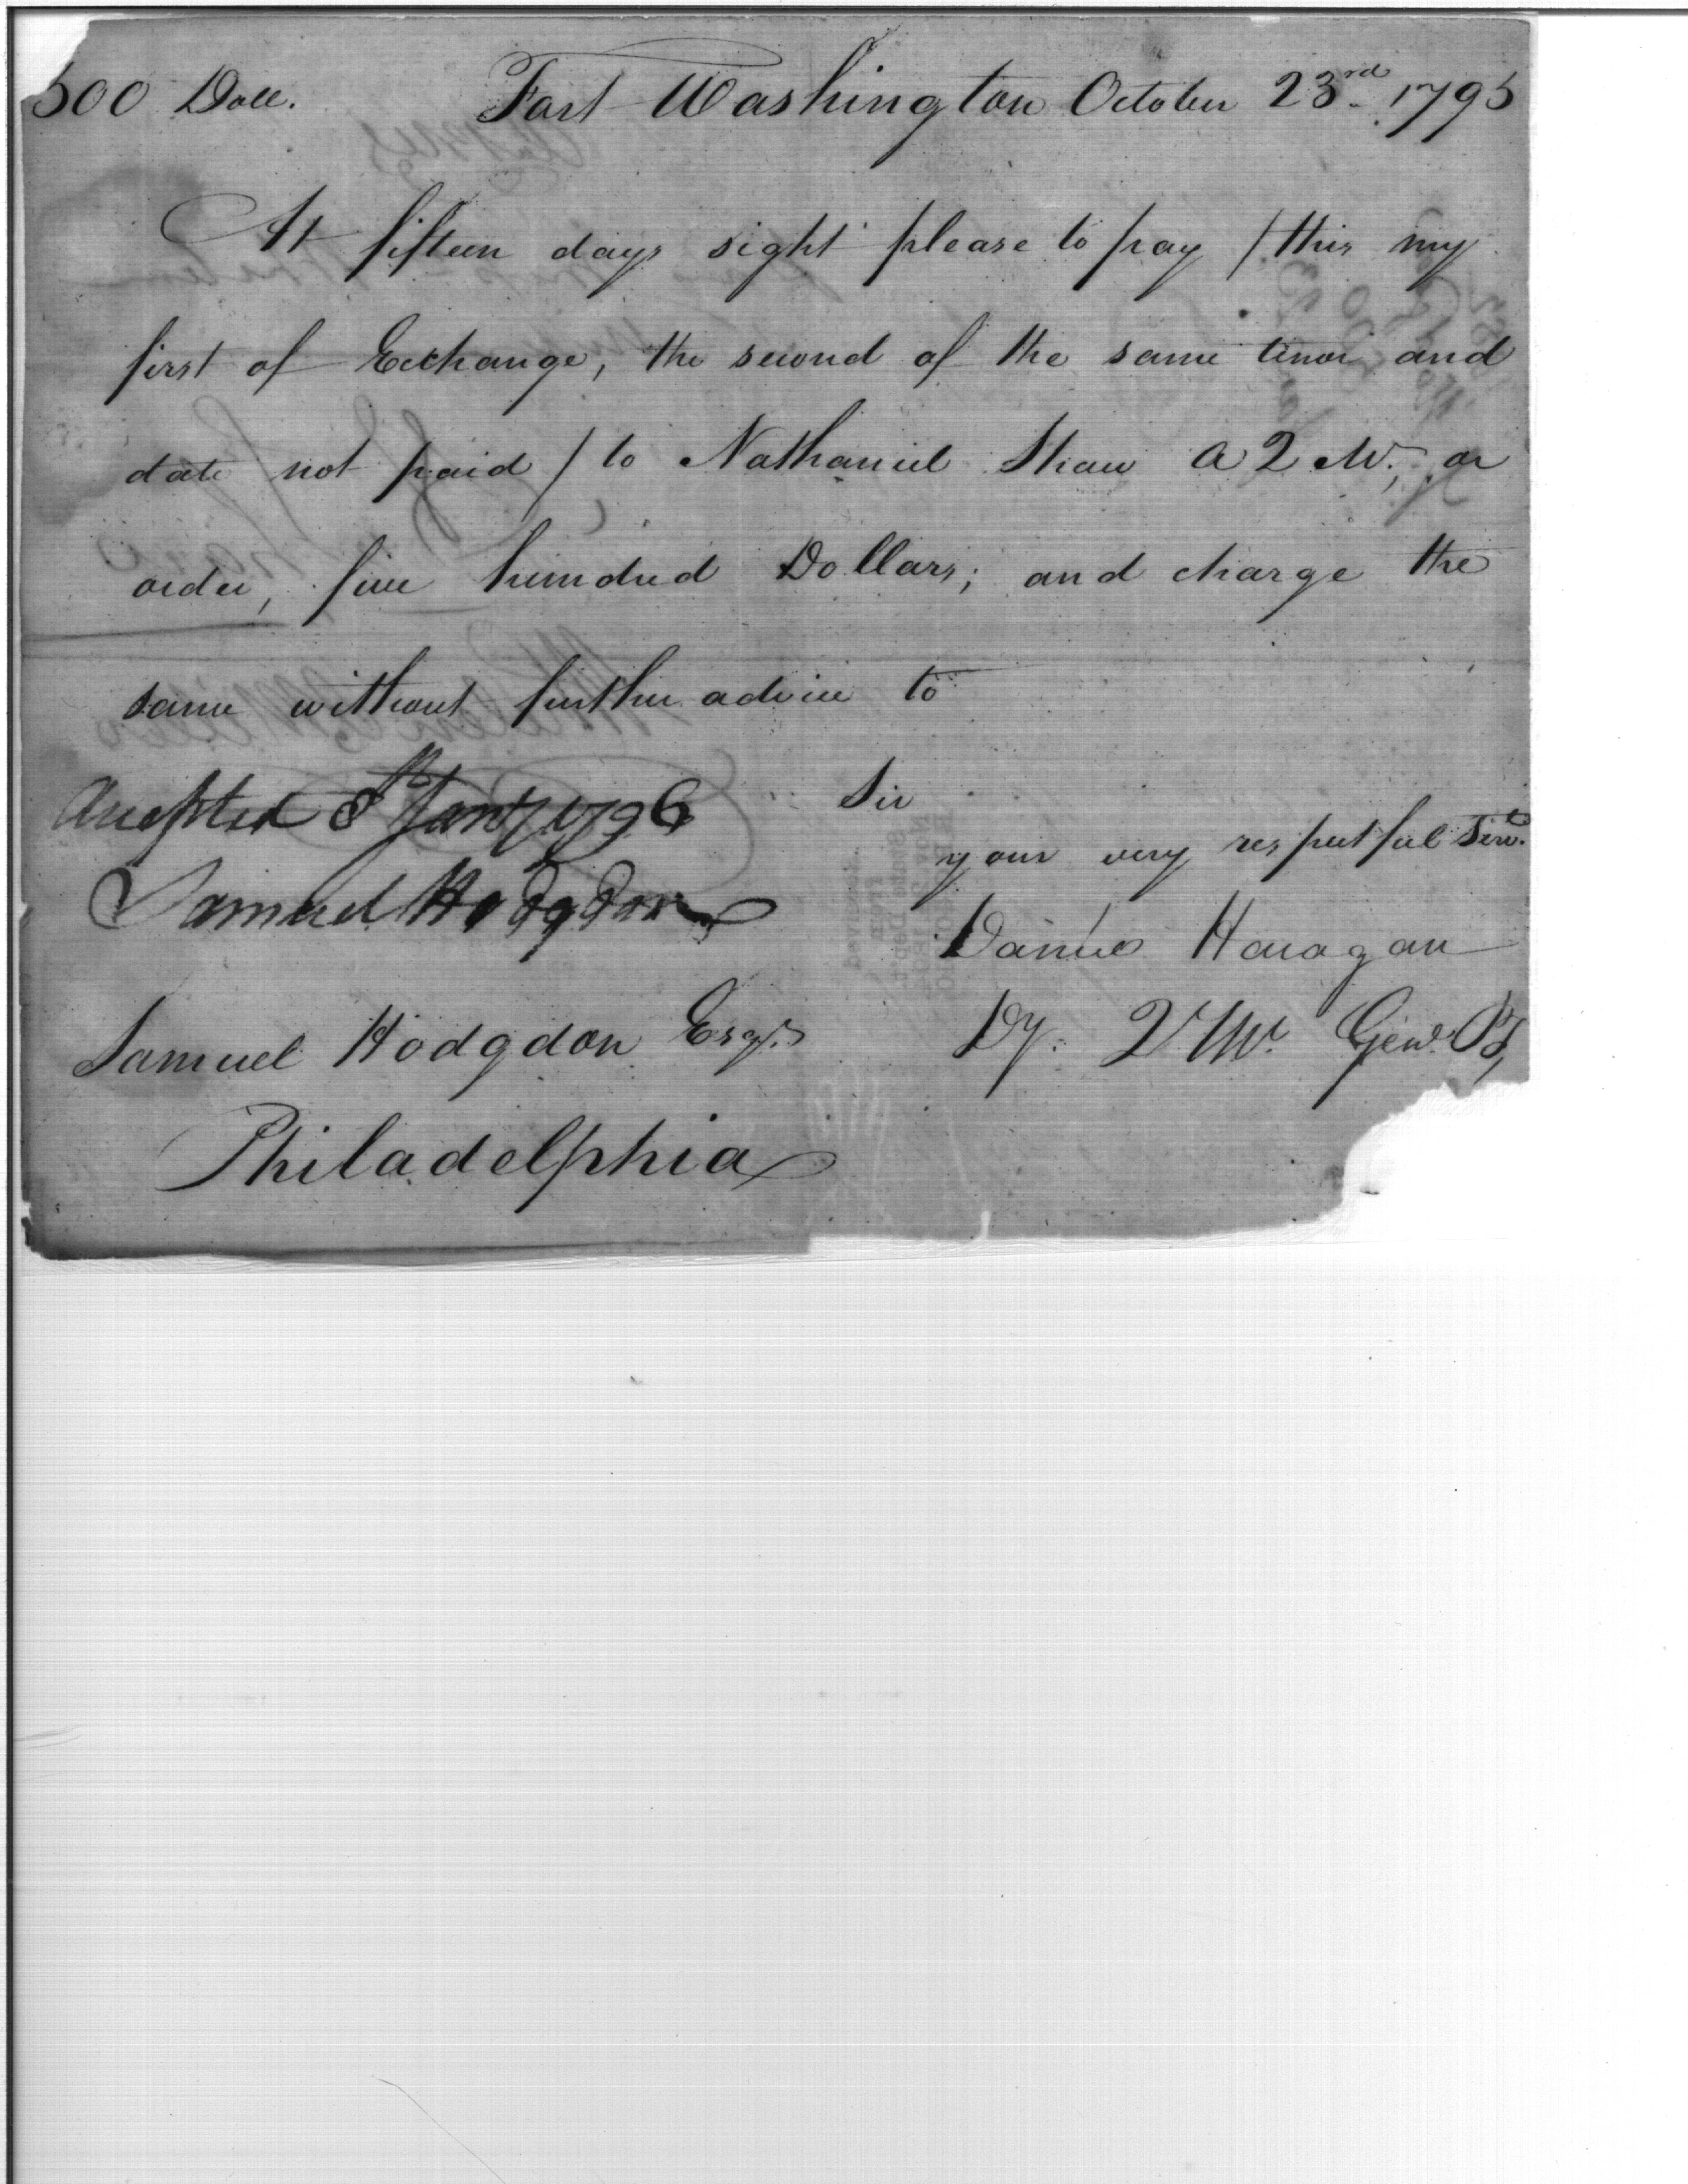 500 Doll. Fort Washington October 23rd 1795
At fifteen days sight please to pay / this my
first of Exchange, the second of the same tenor and
date not paid / to Nathaniel Shaw A Q M, or
order, five hundred Dollars; and charge the
same without further advice to
Sir
your very respectful Servt
Daniel Haragan
Dy. Q M. Genl.
Accepted 8th Jany 1796
Samuel Hodgdon
Samuel Hodgdon Esqr.
Philadelphia